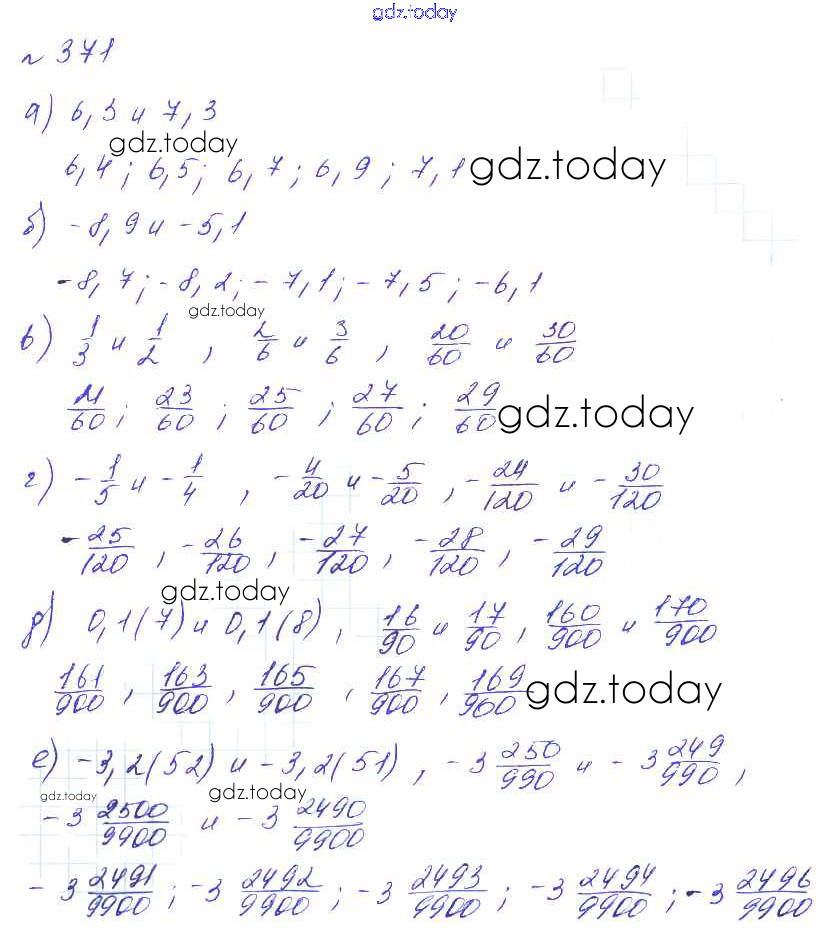 gdz.today
№ 371
а) 6,3 и 7,3
gdz.today
6,4; 6,5; 6,7; 6,9; 7,1 gdz.today
б) -8,9 и -5,1
-8,7; -8,2; -7,1; -7,5; -6,1
gdz.today
в) 1/3 и 1/2, 2/6 и 3/6, 20/60 и 30/60
21/60; 23/60; 25/60; 27/60; 29/60 gdz.today
г) -1/5 и -1/4, -4/20 и -5/20, -24/120 и -30/120
-25/120, -26/120, -27/120, -28/120, -29/120
gdz.today
д) 0,1(7) и 0,1(8), 16/90 и 17/90, 160/900 и 170/900
161/900, 163/900, 165/900, 167/900, 169/900 gdz.today
е) -3,2(52) и -3,2(51), -3 250/990 и -3 249/990,
gdz.today gdz.today
-3 2500/9900 и -3 2490/9900
-3 2491/9900; -3 2492/9900; -3 2493/9900; -3 2494/9900; -3 2496/9900